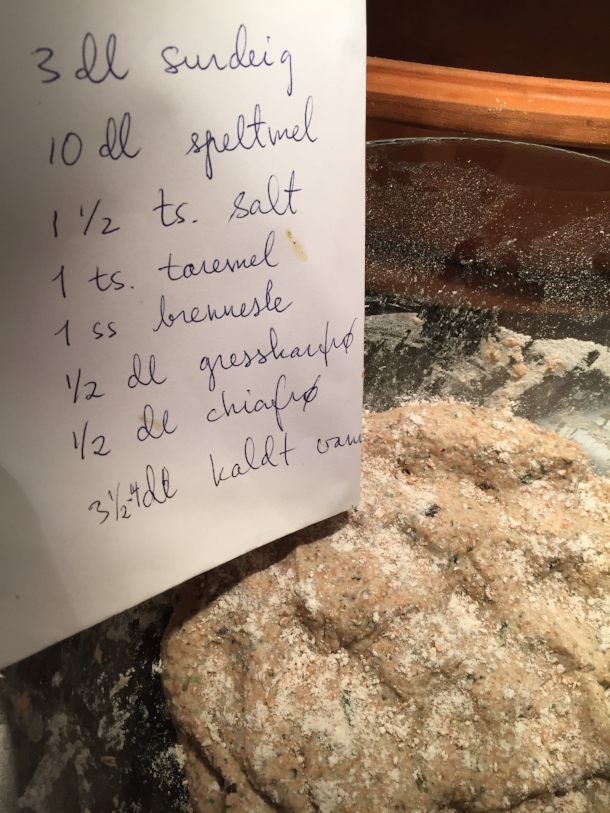 3 dl surdeig
10 dl speltmel
1 1/2 ts. salt
1 ts. taremel
1 ss brennesle
1/2 dl gresskarfrø
1/2 dl chiafrø
3 1/2-4 dl kaldt vann